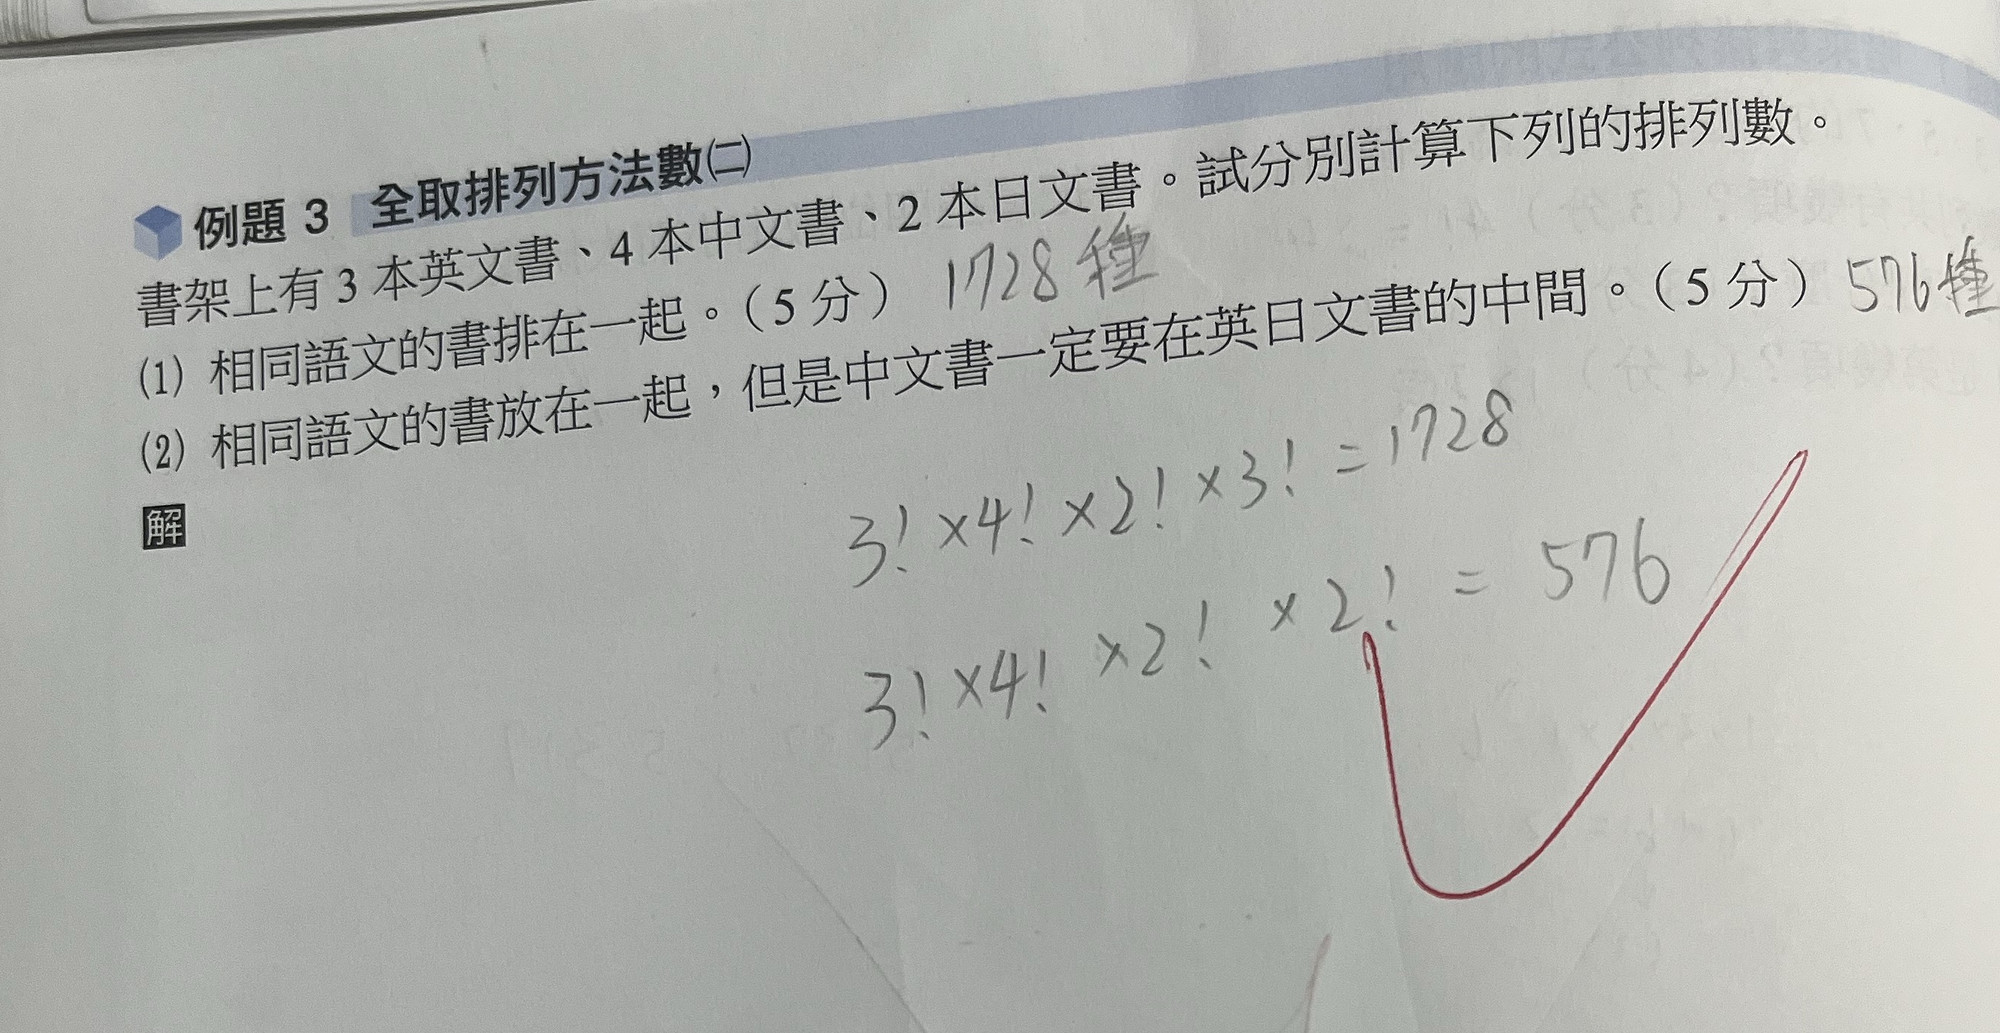 例題 3 全取排列方法數㈡
書架上有 3 本英文書、4 本中文書、2 本日文書。試分別計算下列的排列數。
⑴ 相同語文的書排在一起。(5 分) 1728種
⑵ 相同語文的書放在一起，但是中文書一定要在英日文書的中間。(5 分) 576種
解
3! ×4! ×2! ×3! =1728
3! ×4! ×2! ×2! = 576